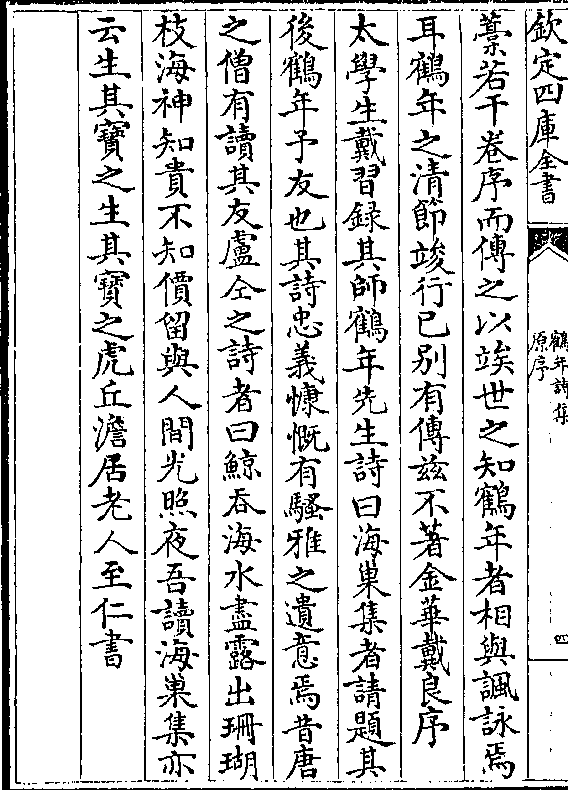 欽定四庫全書
鶴年詩集
原序
四
藁若干卷序而傳之以竢世之知鶴年者相與諷詠焉
耳鶴年之清節竣行已别有傳兹不著金華戴良序
太學生戴習録其師鶴年先生詩曰海巢集者請題其
後鶴年予友也其詩忠義慷慨有騷雅之遺意焉昔唐
之僧有讀其友盧仝之詩者曰鯨吞海水盡露出珊瑚
枝海神知貴不知價留與人間光照夜吾讀海巢集亦
云生其寳之生其寳之虎丘澹居老人至仁書